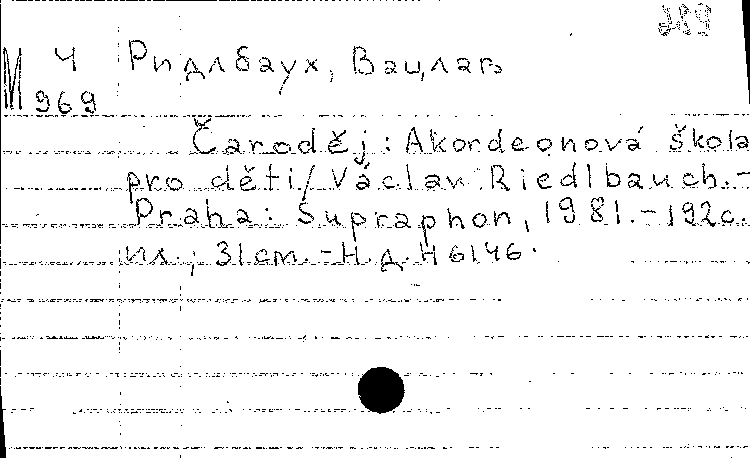 289
М Ч Ридлбаух, Вацлав
969
Čaroděj: Akordeonová škola
pro děti/ Václav Riedlbauch.-
Praha: Supraphon, 1981.-192с.
ил.; 31cm.-Н.д. H 6146.